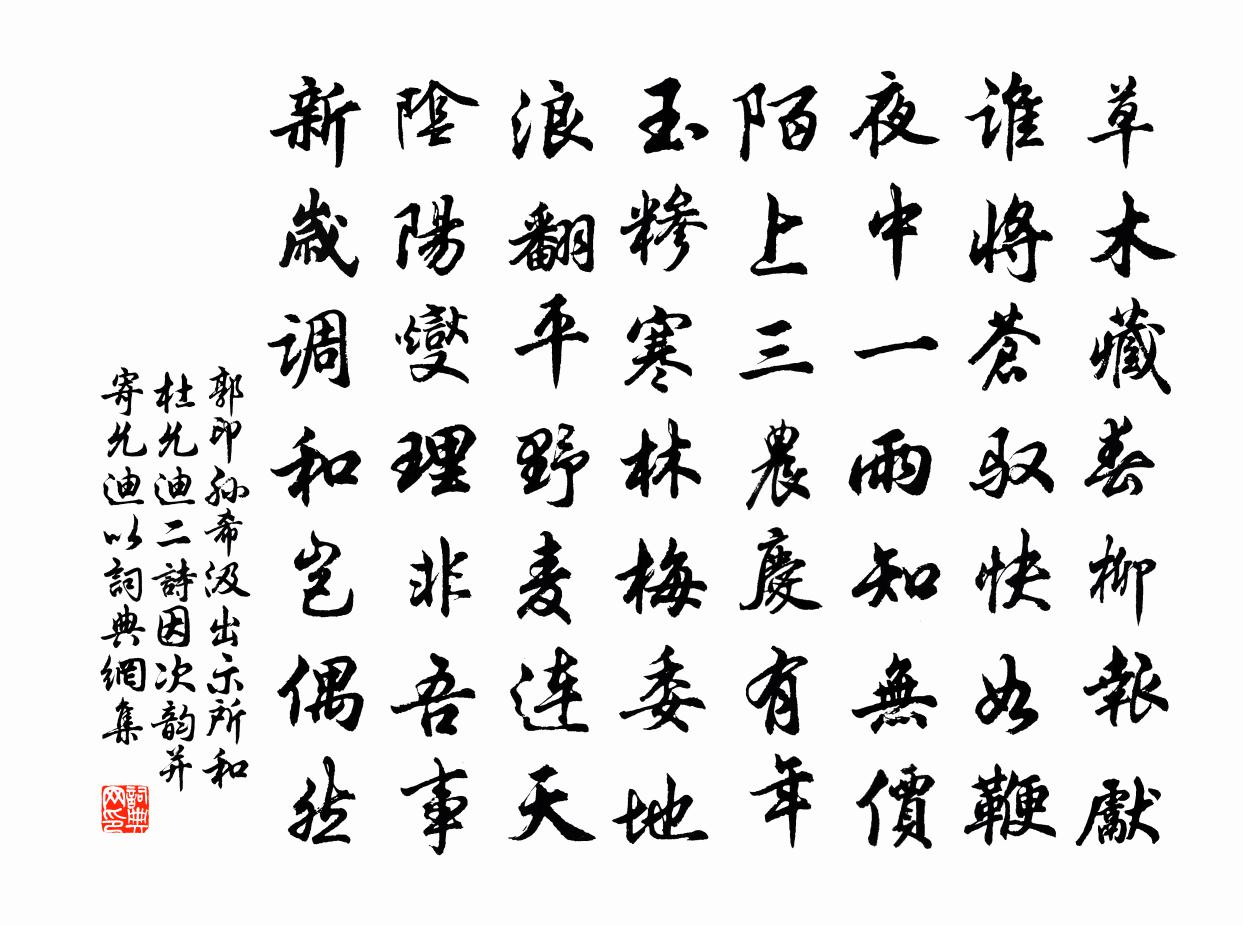 草木藏春柳報獻
谁將蒼驭快如鞭
夜中一雨知無價
陌上三農慶有年
玉糝寒林梅委地
浪翻平野麦連天
陰陽燮理非吾事
新歲调和岂偶然
郭印孫希汲出示所和
杜允迪二詩因次韵并
寄允迪以詞典網集
詞典网印